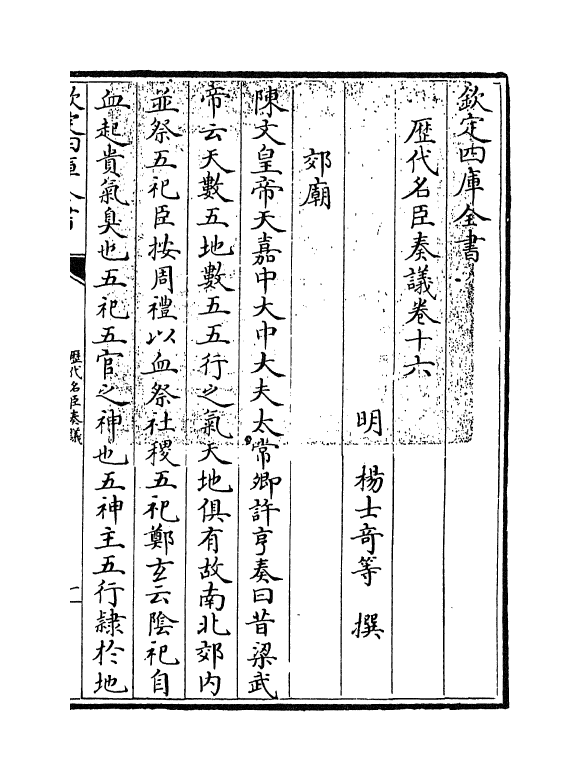 欽定四庫全書
歴代名臣奏議卷十六
明 楊士竒等 撰
郊廟
陳文皇帝天嘉中大中大夫太常卿許亨奏曰昔梁武
帝云天數五地數五五行之氣天地俱有故南北郊内
並祭五祀臣按周禮以血祭社稷五祀鄭玄云隂祀自
血起貴氣臭也五祀五官之神也五神主五行隷於地
欽定四庫全書
歴代名臣奏議
一